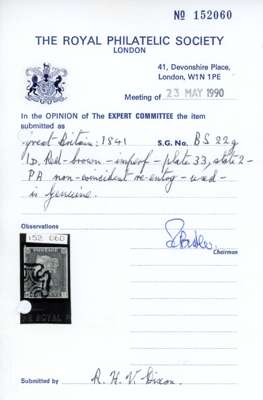 Nº 152060
THE ROYAL PHILATELIC SOCIETY
LONDON
41, Devonshire Place,
London, W1N 1PE
Meeting of 23 MAY 1990
In the OPINION of The EXPERT COMMITTEE the item
submitted as
Great Britain: 1841 S.G. No. BS 22g
1D. Red-brown - imperf - plate 33, state 2 -
PA non-coincident re-entry - used -
is genuine.
Observations
152 060
Chairman
THE ROYAL P
Submitted by R. H. V. Dixon.